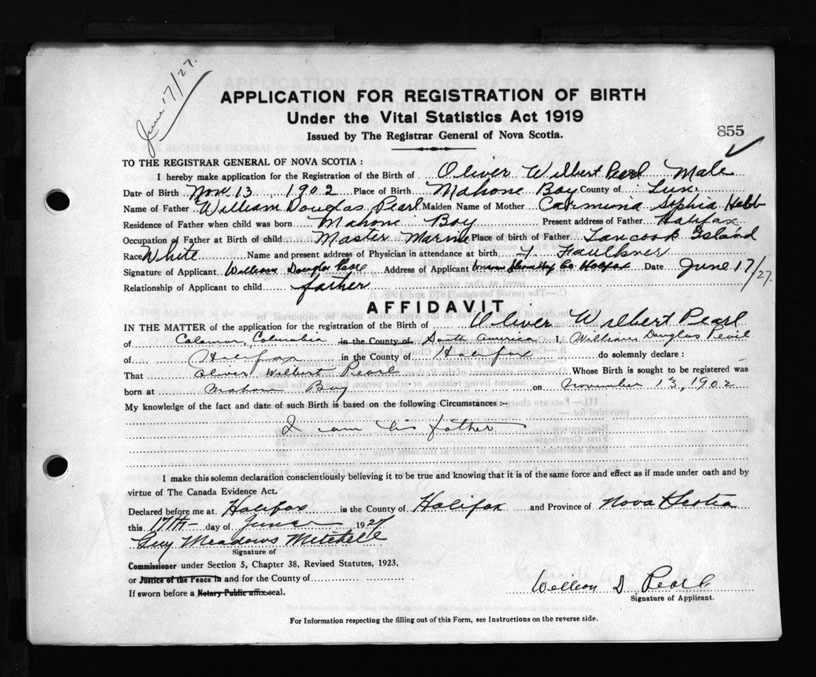 June 17/27.
APPLICATION FOR REGISTRATION OF BIRTH
Under the Vital Statistics Act 1919
Issued by The Registrar General of Nova Scotia.
855
TO THE REGISTRAR GENERAL OF NOVA SCOTIA :
I hereby make application for the Registration of the Birth of Oliver Wilbert Pearl Male
Date of Birth Nov. 13 1902 Place of Birth Mahone Bay County of Lun.
Name of Father William Douglas Pearl Maiden Name of Mother Sophia Hebb
Residence of Father when child was born Mahone Bay Present address of Father Halifax
Occupation of Father at Birth of child Master Marine Place of birth of Father Tancook Island
Race White Name and present address of Physician in attendance at birth Faulkner
Signature of Applicant William Douglas Pearl Address of Applicant Co Halifax Date June 17/27.
Relationship of Applicant to child father
AFFIDAVIT
IN THE MATTER of the application for the registration of the Birth of Oliver Wilbert Pearl
of Columbia in the County of South America I, William Douglas Pearl
of Halifax in the County of Halifax do solemnly declare :
That Oliver Wilbert Pearl Whose Birth is sought to be registered was
born at Mahone Bay on November 13, 1902
My knowledge of the fact and date of such Birth is based on the following Circumstances :-
I am his father
I make this solemn declaration conscientiously believing it to be true and knowing that it is of the same force and effect as if made under oath and by
virtue of The Canada Evidence Act.
Declared before me at Halifax in the County of Halifax and Province of Nova Scotia
this 17th day of 1927
Guy Meadows Mitchell
Signature of
Commissioner under Section 5, Chapter 38, Revised Statutes, 1923,
or Justice of the Peace in and for the County of
If sworn before a Notary Public affix seal.
William D Pearl
Signature of Applicant.
For Information respecting the filling out of this Form, see Instructions on the reverse side.